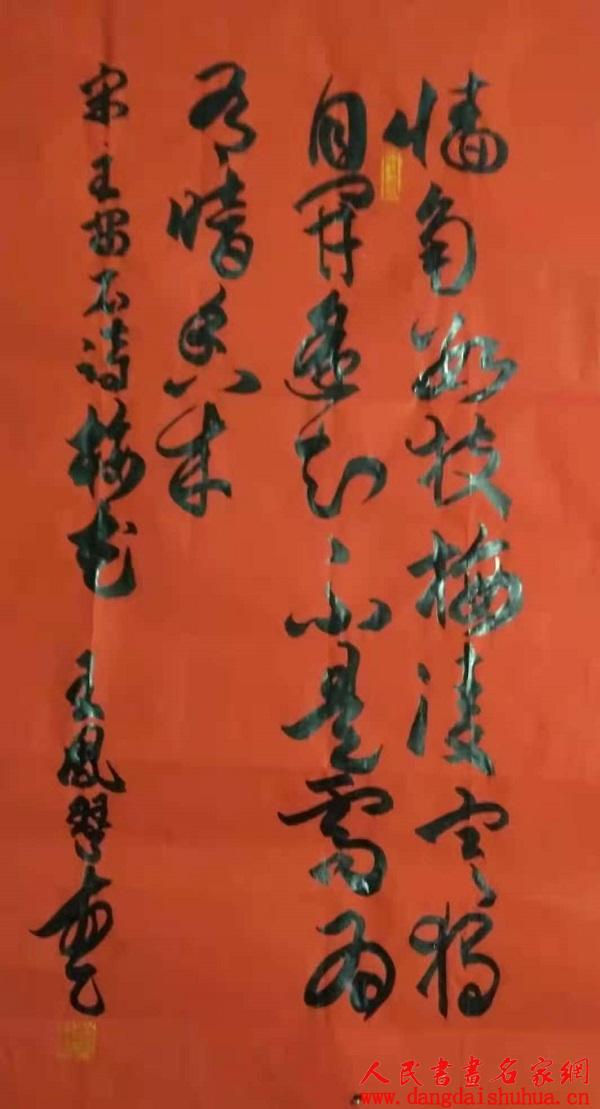 墙角数枝梅凌寒独
自開遥知不是雪为
有暗香来
宋王安石诗梅花 王鳳琴书
人民書畫名家網
www.dangdaishuhua.cn